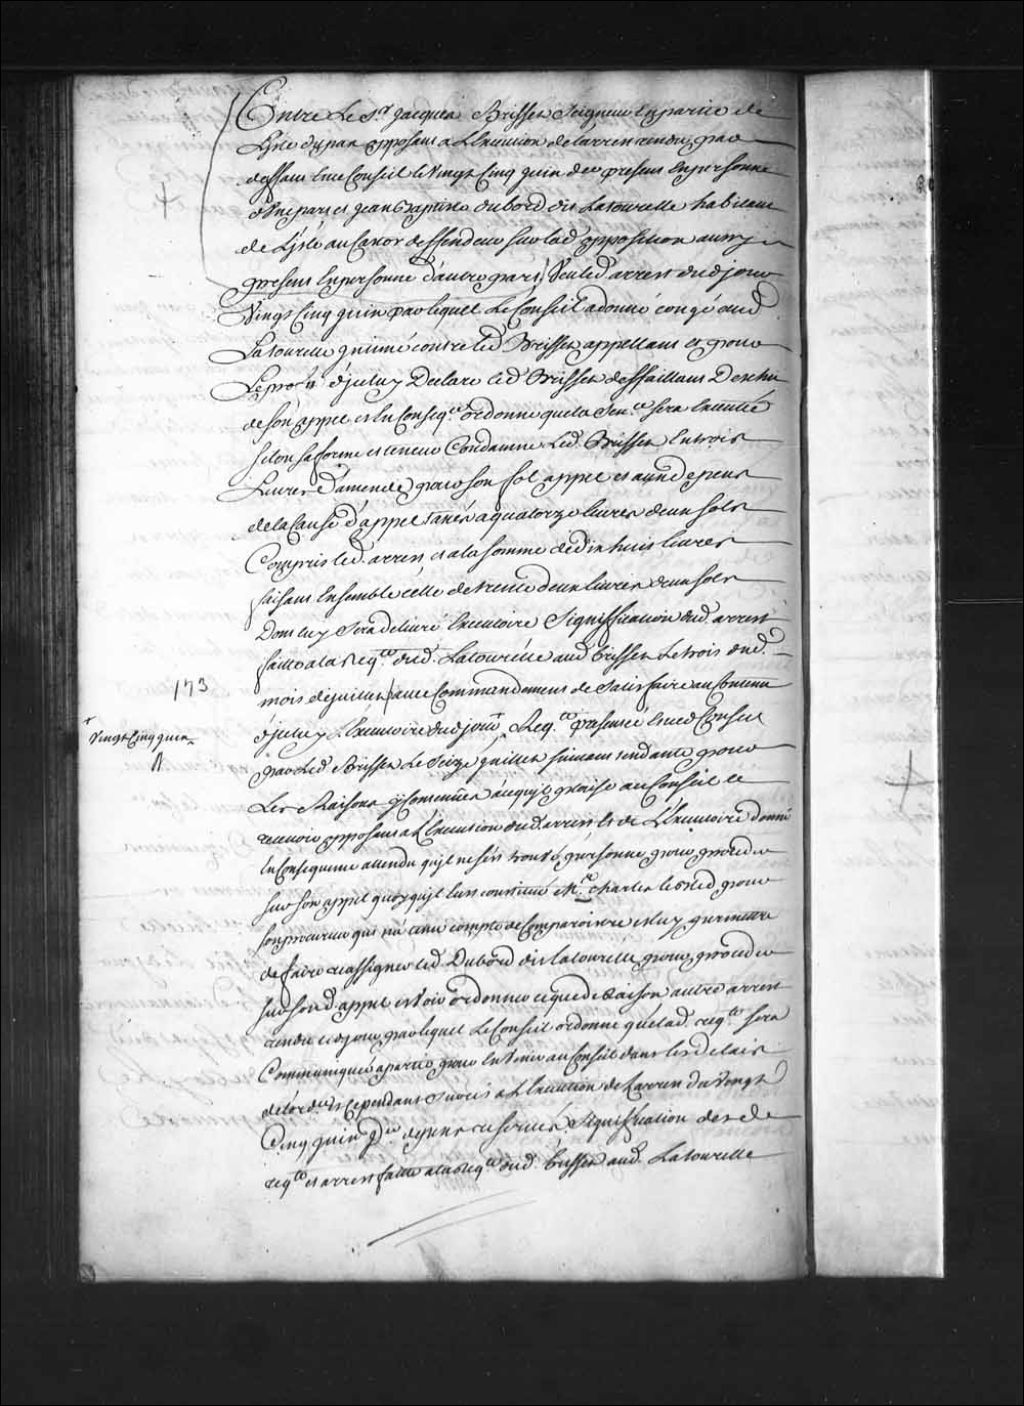 Entre Le Sr. Jacques Brisset Seigneur En partie de
L'Isle dupas opposant a L'Execution de larrest rendu par
deffaut En ce Conseil le Vingt Cinq juin der present En personne
d'Une part et jean Baptiste dubord dit Latourelle habitant
de L'isle au Castor deffendeur sur lad opposition aussy
present En personne d'autre part, Veu led arrest dud jour
Vingt Cinq juin par lequel Le Conseil a donné congé aud
Latourelle jntimé contre led Brisset appellant et pour
Le profit d'jceluy Declare led Brisset deffaillant Descheu
de son appel et En Conseqce ordonne que la Sence sera Executée
selon sa forme et teneur Condamne Led. Brisset En trois
Livres d'amende pour son fol appel et aux depens
de la Cause d'appel taxés a quatorze livres deux sols
Compris led. arrest et a la somme de dix huit livres
faisant Ensemble celle de trente deux livres deux sols
Dont luy Sera delivré Executoire Signiffication dud. arrest
faitte a la Reqte dud. Latourelle aud Brisset Le trois dud.
173
mois de juillet avec Commandement de Satisfaire au Contenu
d'jceluy L'Executoire dud jour Reqte presentée En ce Conseil
+ Vingt Cinq juin
par Led Brisset Le Seize juillet suivant tendante pour
Les Raisons y Contenües a ce qu'jl plaise au Conseil le
recevoir opposant a L'Execution dud. arrest Et de L'Executoire donné
En Consequence attendu qu'jl ne s'est trouvé personne pour proceder
sur son appel quoy qu'jl Eust constitué Me. Charles pour
son procureur qui n'a tenu compte de Comparoistre et luy permettre
de faire reassigner led. Dubord dit latourelle pour proceder
sur sond. appel et Voir ordonner ce que de Raison autre arrest
rendu led jour par lequel Le Conseil ordonne que lad. reqte sera
Communiquée a partie pour En Venir au Conseil dans les delais
de l'ordce Et Cependant surcis a L'Execution de L'arrest du Vingt
Cinq juin der depens reservés Signiffication desd
reqte et arrest faitte a la Reqte dud. Brisset aud. Latourelle